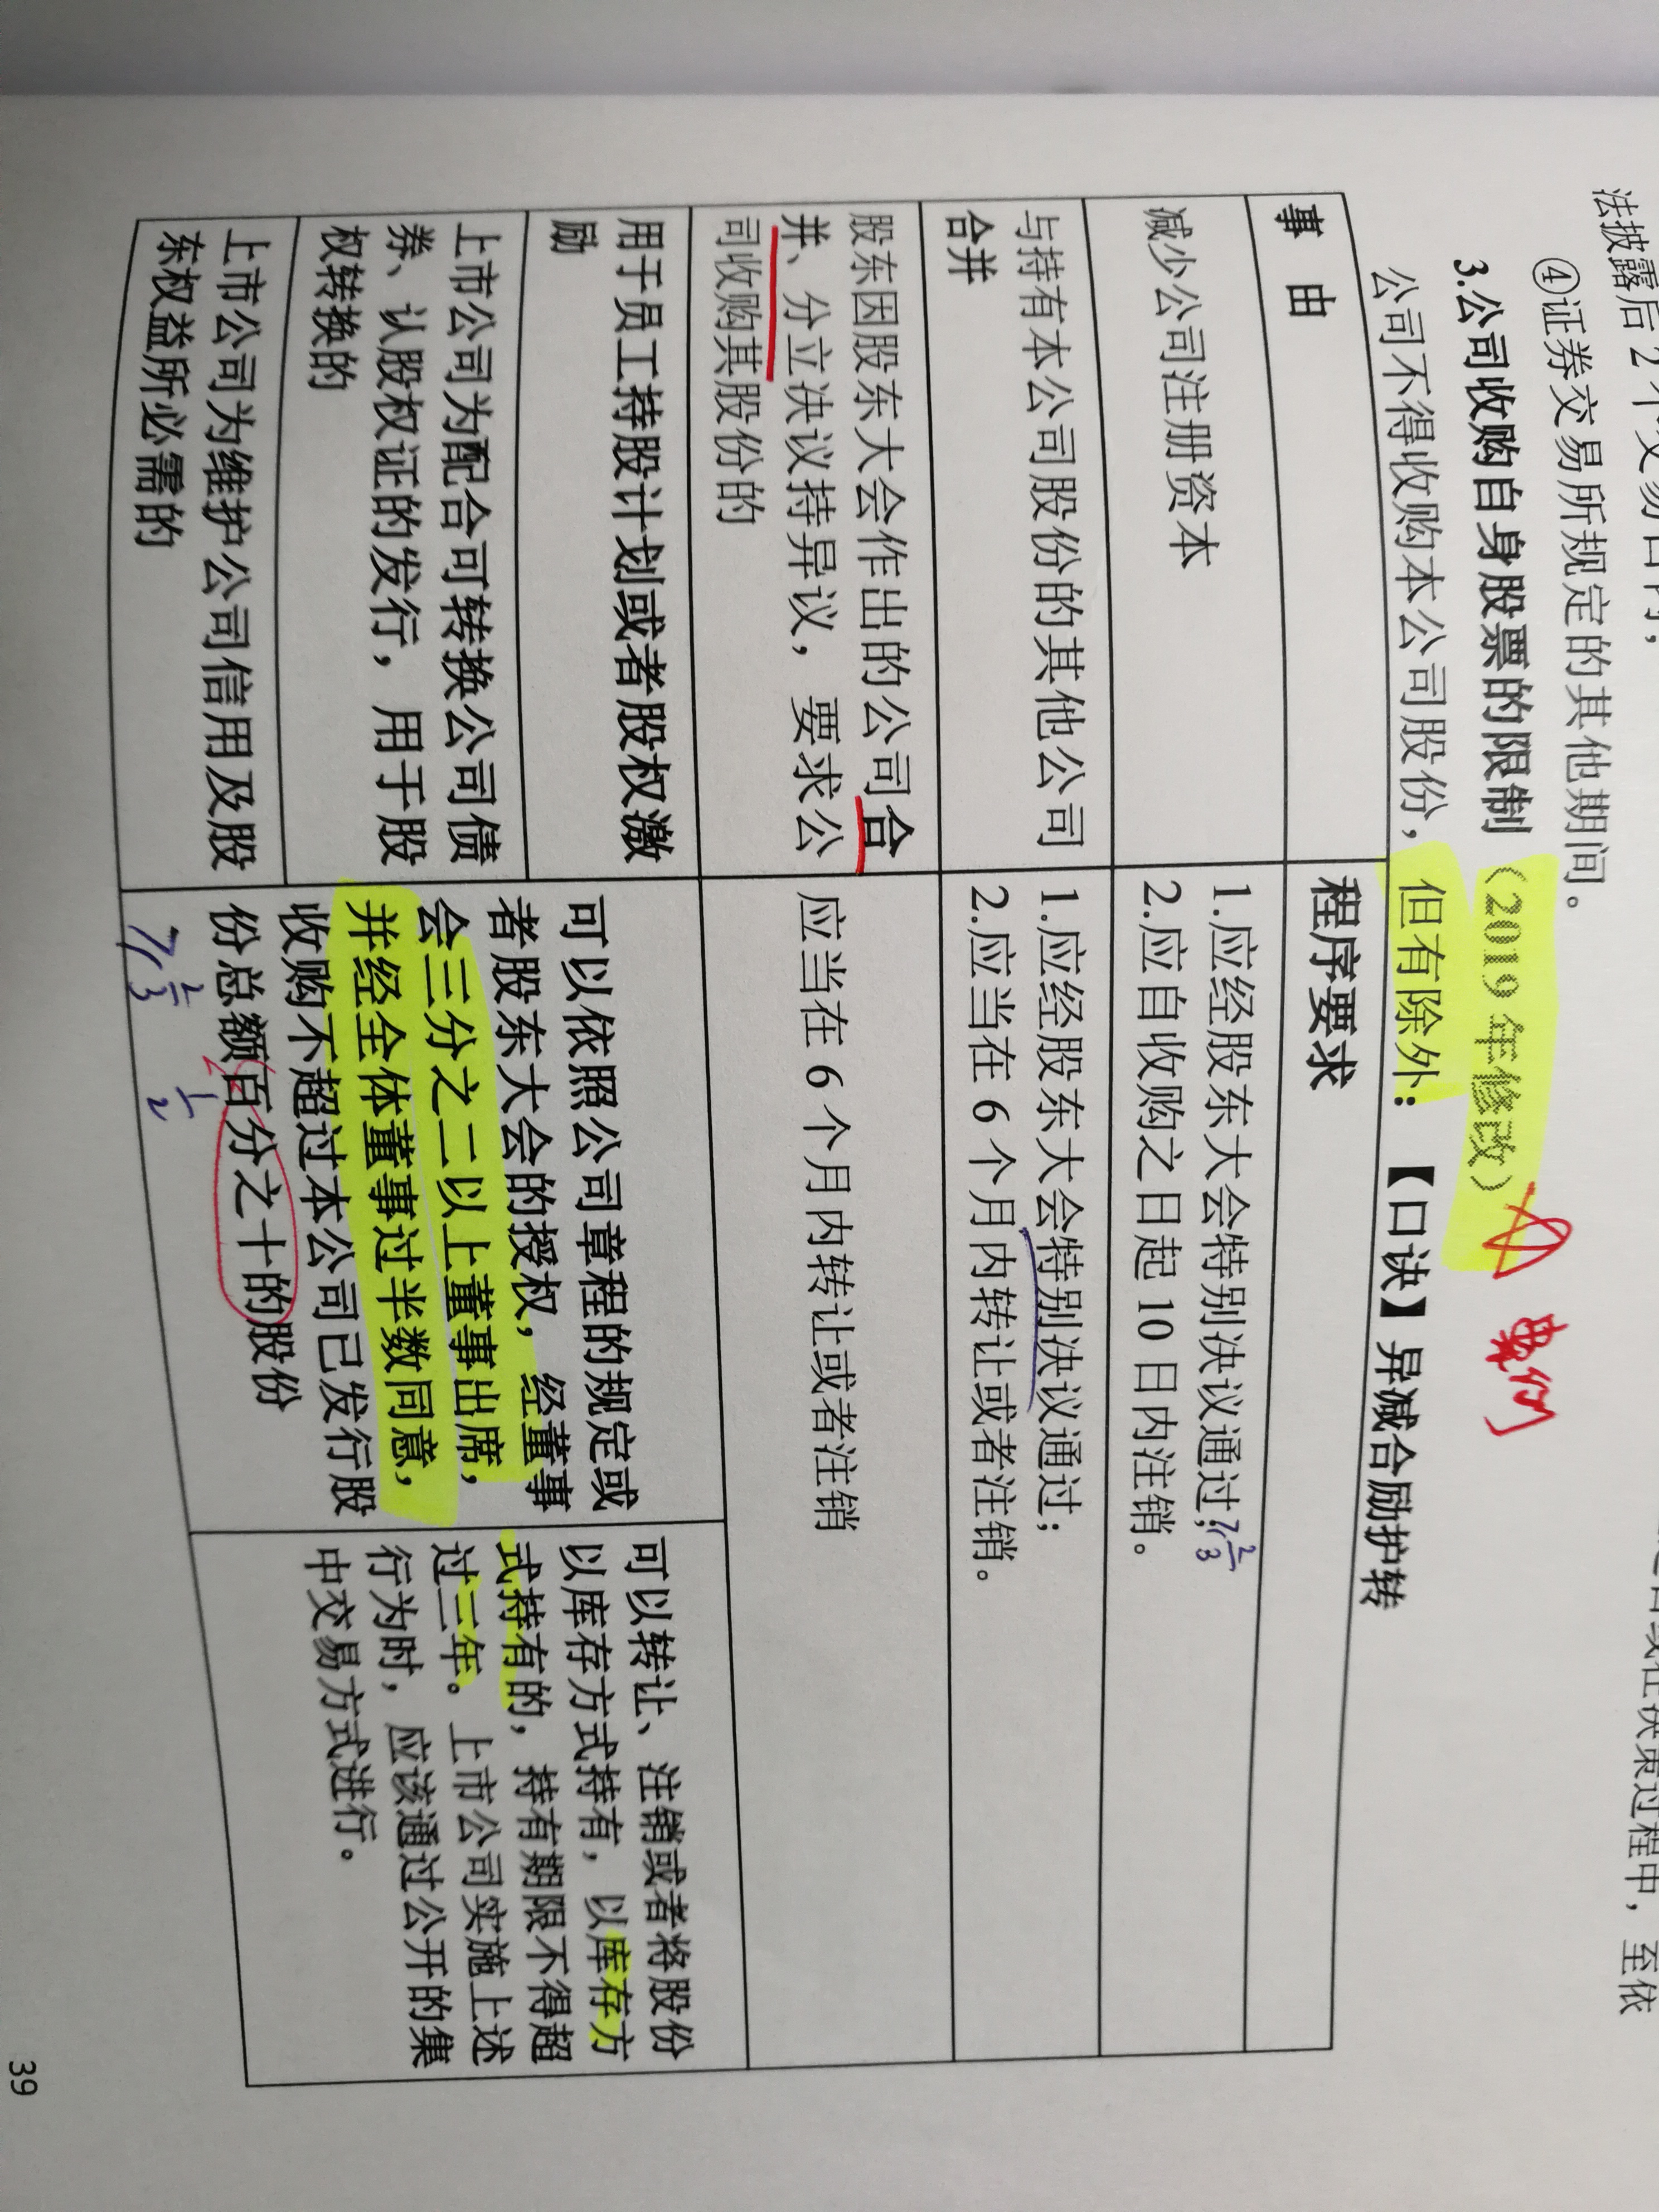 法披露后 2 个交易日内；
④证券交易所规定的其他期间。
3.公司收购自身股票的限制（2019 年修改）
案例
公司不得收购本公司股份，但有除外：【口诀】异减合励护转
事 由
程序要求
减少公司注册资本
1.应经股东大会特别决议通过；
2.应自收购之日起 10 日内注销。
与持有本公司股份的其他公司
合并
1.应经股东大会特别决议通过；
2.应当在 6 个月内转让或者注销。
股东因股东大会作出的公司合
并、分立决议持异议，要求公
司收购其股份的
应当在 6 个月内转让或者注销
用于员工持股计划或者股权激
励
上市公司为配合可转换公司债
券、认股权证的发行，用于股
权转换的
上市公司为维护公司信用及股
东权益所必需的
可以依照公司章程的规定或
者股东大会的授权，经董事
会三分之二以上董事出席，
并经全体董事过半数同意，
收购不超过本公司已发行股
份总额百分之十的股份
可以转让、注销或者将股份
以库存方式持有，以库存方
式持有的，持有期限不得超
过三年。上市公司实施上述
行为时，应该通过公开的集
中交易方式进行。
39